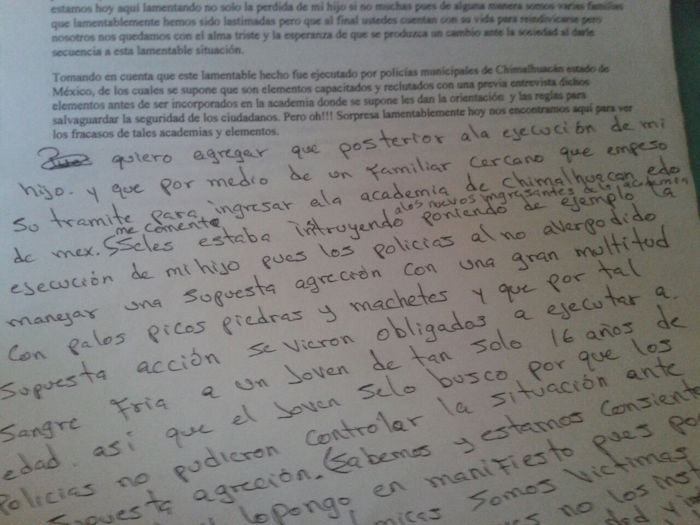 estamos hoy aquí lamentando no solo la perdida de mi hijo si no muchas pues de alguna manera somos varias familias
que lamentablemente hemos sido lastimadas pero que al final ustedes cuentan con su vida para reindivicarse pero
nosotros nos quedamos con el alma triste y la esperanza de que se produzca un cambio ante la sociedad al darle
secuencia a esta lamentable situación.
Tomando en cuenta que este lamentable hecho fue ejecutado por policías municipales de Chimalhuacán estado de
México, de los cuales se supone que son elementos capacitados y reclutados con una previa entrevista dichos
elementos antes de ser incorporados en la academia donde se supone les dan la orientación y las reglas para
salvaguardar la seguridad de los ciudadanos. Pero oh!!! Sorpresa lamentablemente hoy nos encontramos aquí para ver
los fracasos de tales academias y elementos.
quiero agregar que posterior ala ejecución de mi
hijo. y que por medio de un familiar cercano que empeso
su tramite para ingresar ala academia de Chimalhuecan edo
me comento alos nuevos ingresantes de la academia
de mex. Seles estaba intruyendo poniendo de ejemplo la
ejecución de mi hijo pues los policias al no averpodido
manejar una supuesta agreción con una gran multitud
con palos picos piedras y machetes y que por tal
supuesta acción se vieron obligados a ejecutar a.
sangre fria a un Joven de tan solo 16 años de
edad. asi que el Joven selo busco por que los
Policias no pudieron controlar la situación ante
supuesta agreción. (Sabemos y estamos consiente
lopongo en manifiesto pues po
somos victimas
no los